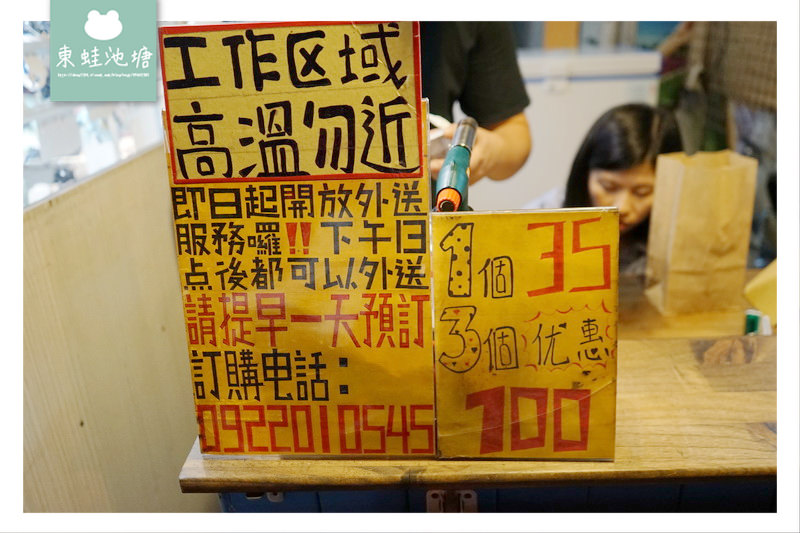 東蛙池塘
工作区域
高溫勿近
即日起開放外送
服務囉!!下午13
点後都可以外送
請提早一天預訂
訂購电話:
0922010545
1個 35
3個 优惠
100